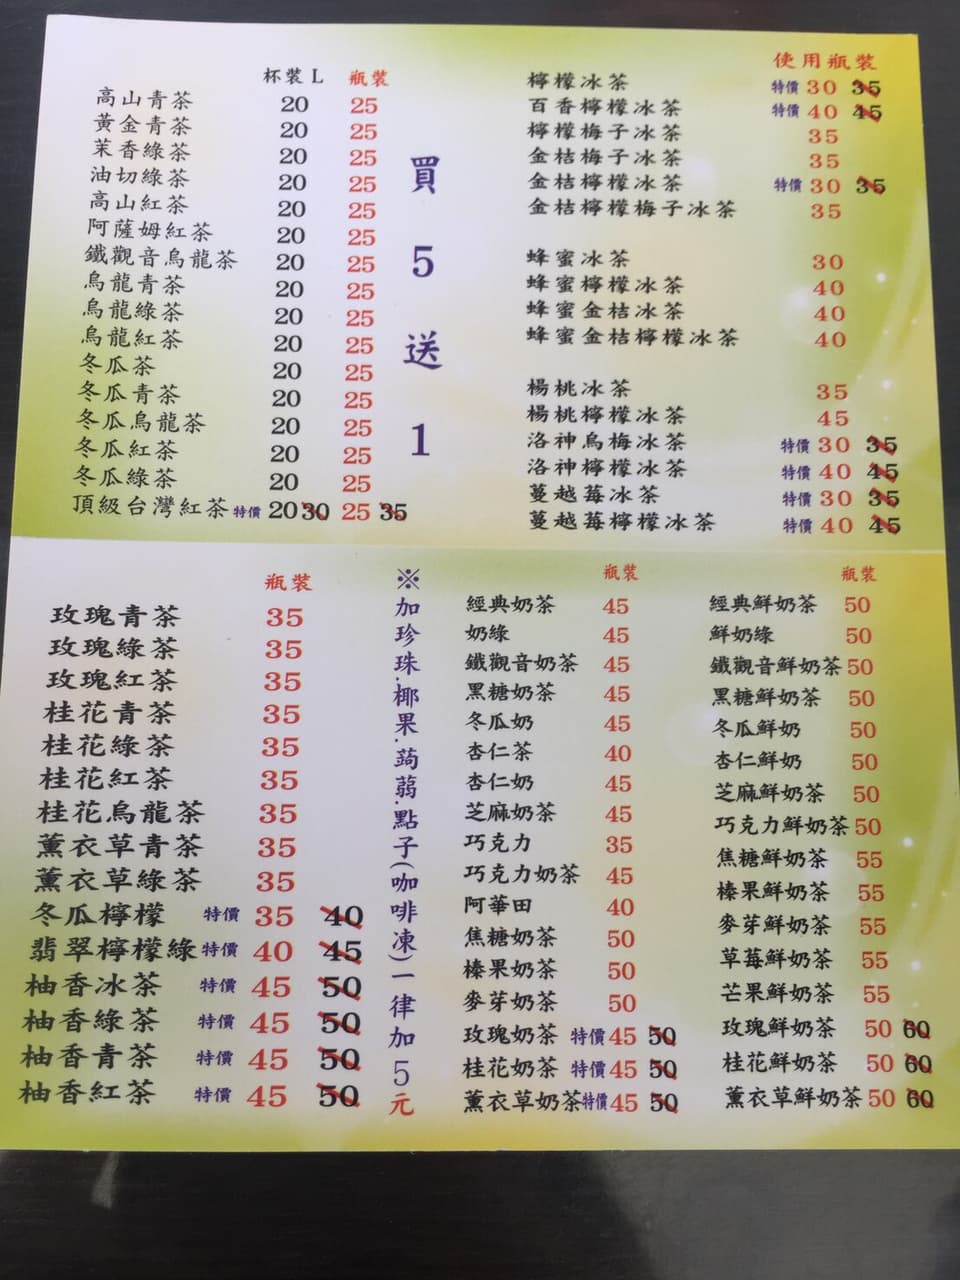 杯裝 L 瓶裝
高山青茶 20 25
黃金青茶 20 25
茉香綠茶 20 25
油切綠茶 20 25
高山紅茶 20 25
阿薩姆紅茶 20 25
鐵觀音烏龍茶 20 25
烏龍青茶 20 25
烏龍綠茶 20 25
烏龍紅茶 20 25
冬瓜茶 20 25
冬瓜青茶 20 25
冬瓜烏龍茶 20 25
冬瓜紅茶 20 25
冬瓜綠茶 20 25
頂級台灣紅茶 特價 20 30 25 35
買5送1
使用瓶裝
檸檬冰茶 特價 30 35
百香檸檬冰茶 特價 40 45
檸檬梅子冰茶 35
金桔梅子冰茶 35
金桔檸檬冰茶 特價 30 35
金桔檸檬梅子冰茶 35
蜂蜜冰茶 30
蜂蜜檸檬冰茶 40
蜂蜜金桔冰茶 40
蜂蜜金桔檸檬冰茶 40
楊桃冰茶 35
楊桃檸檬冰茶 45
洛神烏梅冰茶 特價 30 35
洛神檸檬冰茶 特價 40 45
蔓越莓冰茶 特價 30 35
蔓越莓檸檬冰茶 特價 40 45
瓶裝
玫瑰青茶 35
玫瑰綠茶 35
玫瑰紅茶 35
桂花青茶 35
桂花綠茶 35
桂花紅茶 35
桂花烏龍茶 35
薰衣草青茶 35
薰衣草綠茶 35
冬瓜檸檬 特價 35 40
翡翠檸檬綠 特價 40 45
柚香冰茶 特價 45 50
柚香綠茶 特價 45 50
柚香青茶 特價 45 50
柚香紅茶 特價 45 50
※加珍珠.椰果.蒟蒻.點子(咖啡凍)一律加5元
瓶裝
經典奶茶 45
奶綠 45
鐵觀音奶茶 45
黑糖奶茶 45
冬瓜奶 45
杏仁茶 40
杏仁奶 45
芝麻奶茶 45
巧克力 35
巧克力奶茶 45
阿華田 40
焦糖奶茶 50
榛果奶茶 50
麥芽奶茶 50
玫瑰奶茶 特價 45 50
桂花奶茶 特價 45 50
薰衣草奶茶 特價 45 50
瓶裝
經典鮮奶茶 50
鮮奶綠 50
鐵觀音鮮奶茶 50
黑糖鮮奶茶 50
冬瓜鮮奶 50
杏仁鮮奶 50
芝麻鮮奶茶 50
巧克力鮮奶茶 50
焦糖鮮奶茶 55
榛果鮮奶茶 55
麥芽鮮奶茶 55
草莓鮮奶茶 55
芒果鮮奶茶 55
玫瑰鮮奶茶 50 60
桂花鮮奶茶 50 60
薰衣草鮮奶茶 50 60